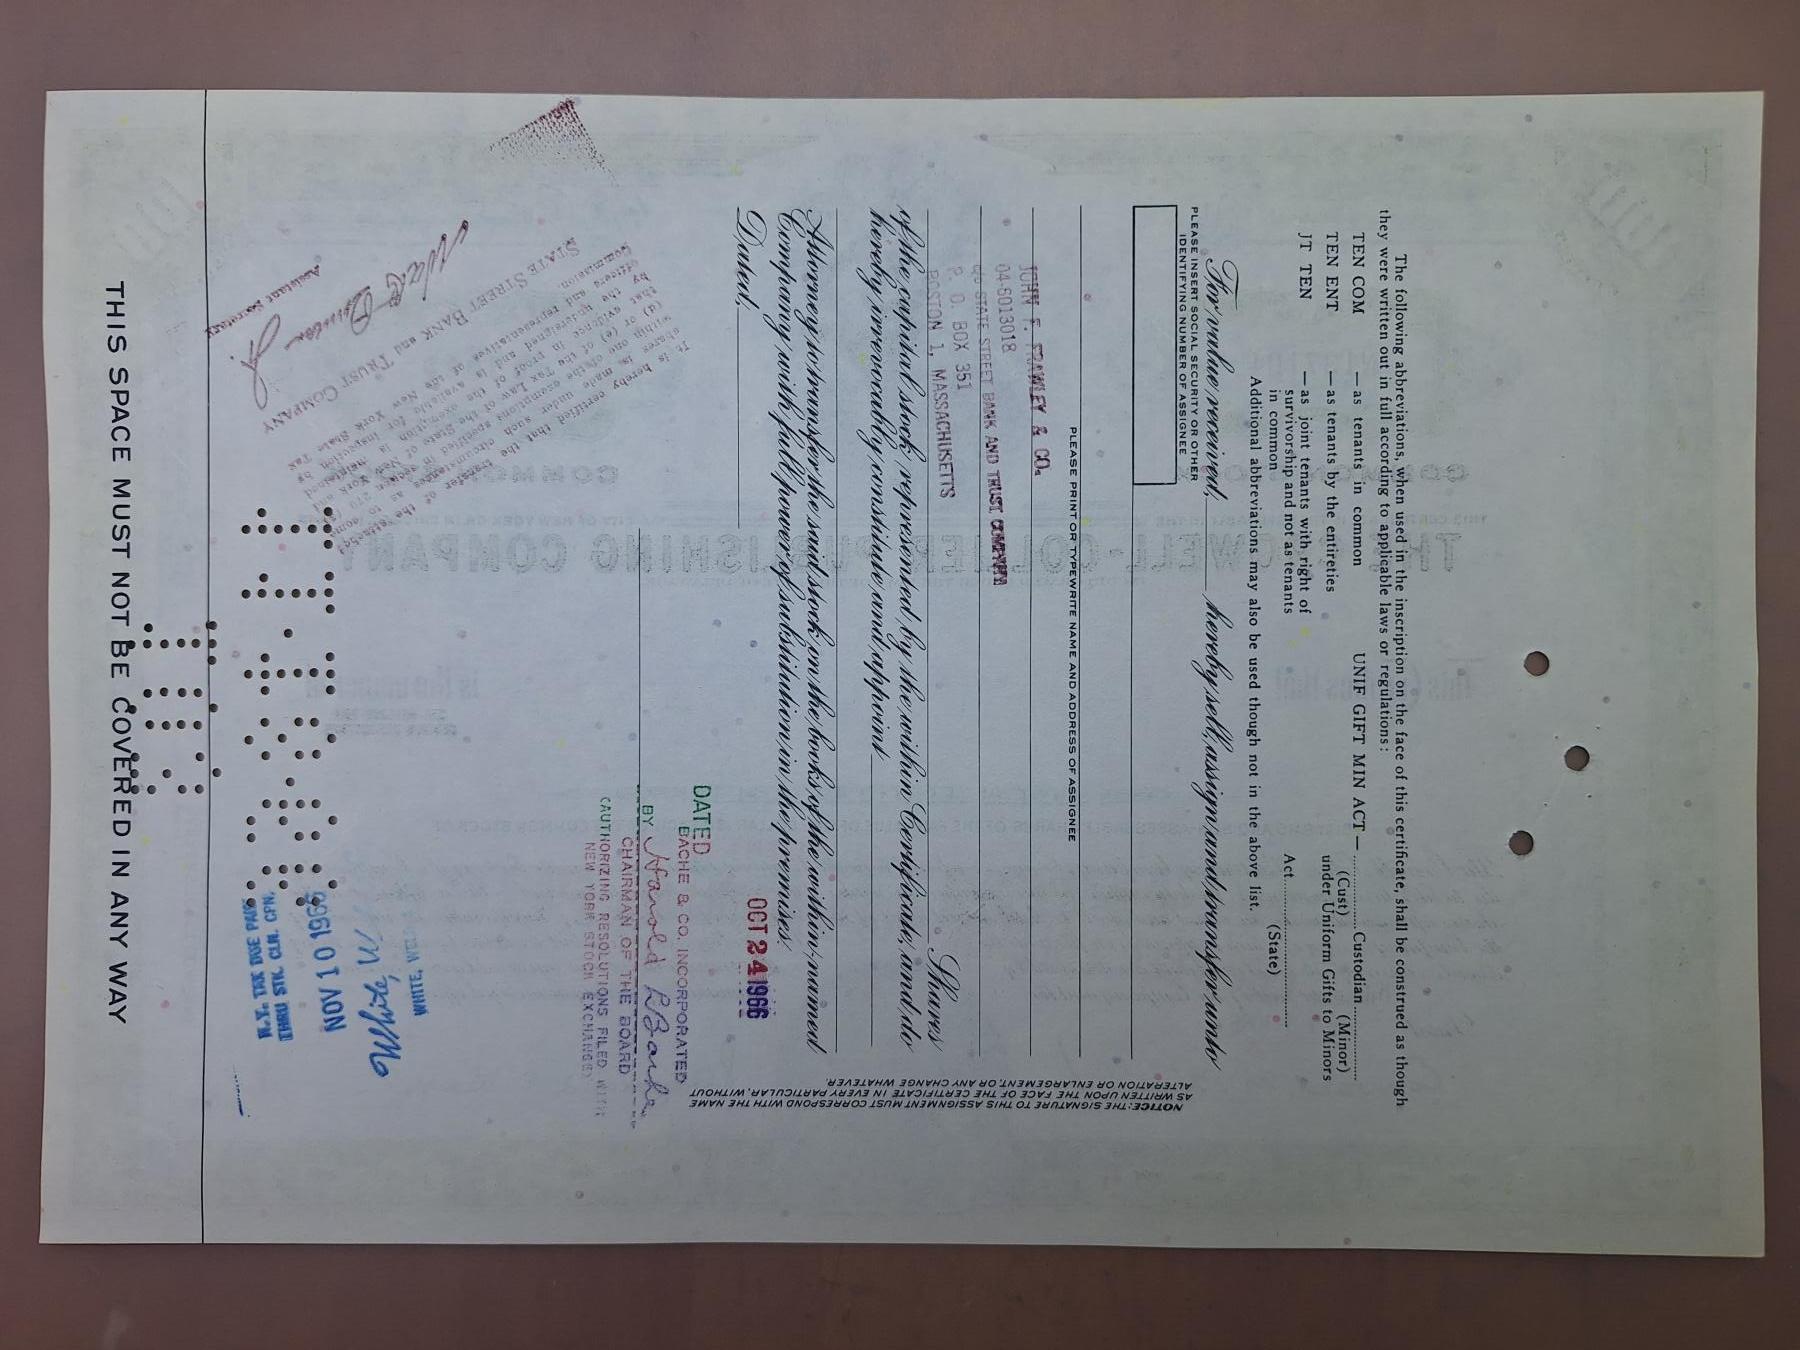 The following abbreviations, when used in the inscription on the face of this certificate, shall be construed as though
they were written out in full according to applicable laws or regulations:
TEN COM — as tenants in common
TEN ENT — as tenants by the entireties
JT TEN — as joint tenants with right of
survivorship and not as tenants
in common
UNIF GIFT MIN ACT — .......... Custodian ..........
(Cust) (Minor)
under Uniform Gifts to Minors
Act ..........
(State)
Additional abbreviations may also be used though not in the above list.
For value received, hereby sell, assign and transfer unto
PLEASE INSERT SOCIAL SECURITY OR OTHER
IDENTIFYING NUMBER OF ASSIGNEE
PLEASE PRINT OR TYPEWRITE NAME AND ADDRESS OF ASSIGNEE
JOHN F. FRAWLEY & CO.
04-6013018
STATE STREET BANK AND TRUST COMPANY
P. O. BOX 351
BOSTON 1, MASSACHUSETTS
Shares
of the capital stock represented by the within Certificate, and do
hereby irrevocably constitute and appoint
Attorney to transfer the said stock on the books of the within-named
Company with full power of substitution in the premises.
Dated,
OCT 24 1966
DATED
BACHE & CO. INCORPORATED
BY
CHAIRMAN OF THE BOARD
(AUTHORIZING RESOLUTIONS FILED WITH
NEW YORK STOCK EXCHANGE)
NOTICE: THE SIGNATURE TO THIS ASSIGNMENT MUST CORRESPOND WITH THE NAME
AS WRITTEN UPON THE FACE OF THE CERTIFICATE IN EVERY PARTICULAR, WITHOUT
ALTERATION OR ENLARGEMENT OR ANY CHANGE WHATEVER.
It is hereby certified that the transfer of the
STATE STREET BANK and TRUST COMPANY
Assistant Secretary
WHITE, WELD
NOV 10 1966
THRU STK. CLR. CPN.
N.Y. TAX DUE PAID
THIS SPACE MUST NOT BE COVERED IN ANY WAY